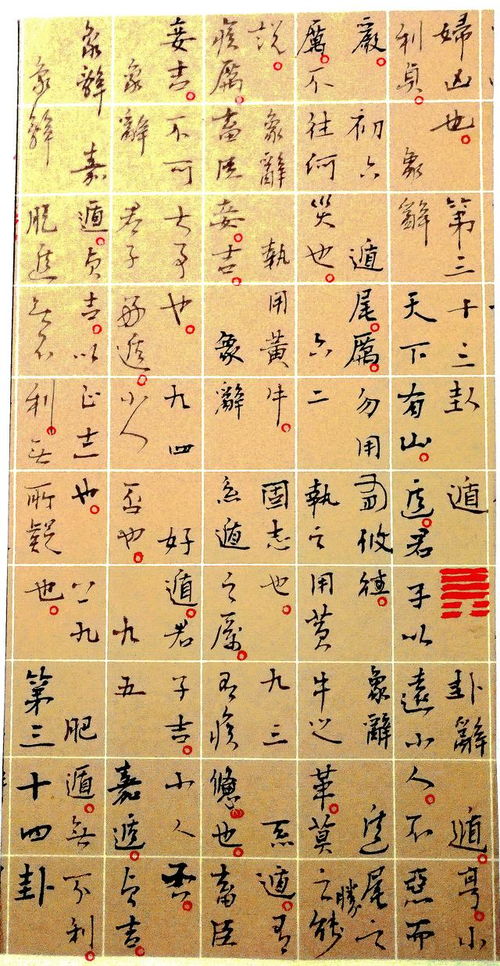 婦凶也。第三十三卦 遁 卦辭 遁。亨。小
利貞。象辭 天下有山。遁。君子以遠小人。不惡而
嚴。初六 遁尾。厲。勿用有攸往。象辭 遁尾之
厲。不往何災也。六二 執之用黃牛之革。莫之能勝
說。象辭 執用黃牛。固志也。九三 系遁。有
疾厲。畜臣妾吉。象辭 系遁之厲。有疾憊也。畜臣
妾吉。不可大事也。九四 好遁。君子吉。小人否。
象辭 君子好遁。小人否也。九五 嘉遁。貞吉。
象辭 嘉遁。貞吉。以正志也。上九 肥遁。無不利。
象辭 肥遁無不利。無所疑也。第三十四卦